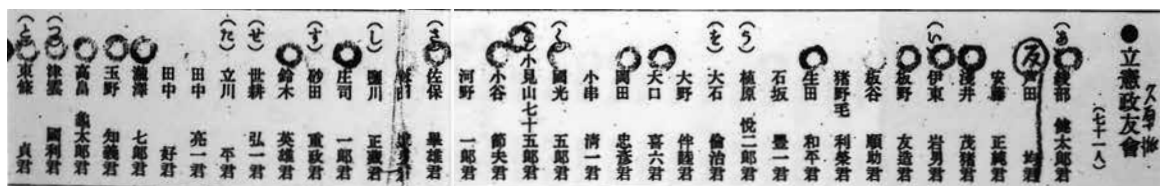 ●立憲政友會
(七十一人)
(あ)綾部 健太郎君
反 芦田 均君
安藤 正純君
淺井 茂猪君
(い)伊東 岩男君
板野 友造君
板谷 順助君
猪野毛 利榮君
生田 和平君
石坂 豊一君
(う)植原 悦二郎君
(を)大石 倫治君
大野 伴睦君
犬口 喜六君
岡田 忠彦君
小串 清一君
國光 五郎君
小見山 七十五郎君
小谷 節夫君
河野 一郎君
(さ)佐保 畢雄君
(し)鹽川 正藏君
庄司 一郎君
(す)砂田 重政君
鈴木 英雄君
(せ)世耕 弘一君
(た)立川 平君
田中 亮一君
田中 好君
瀧澤 七郎君
玉野 知義君
高畠 龜太郎君
(つ)津雲 國利君
(と)東條 貞君